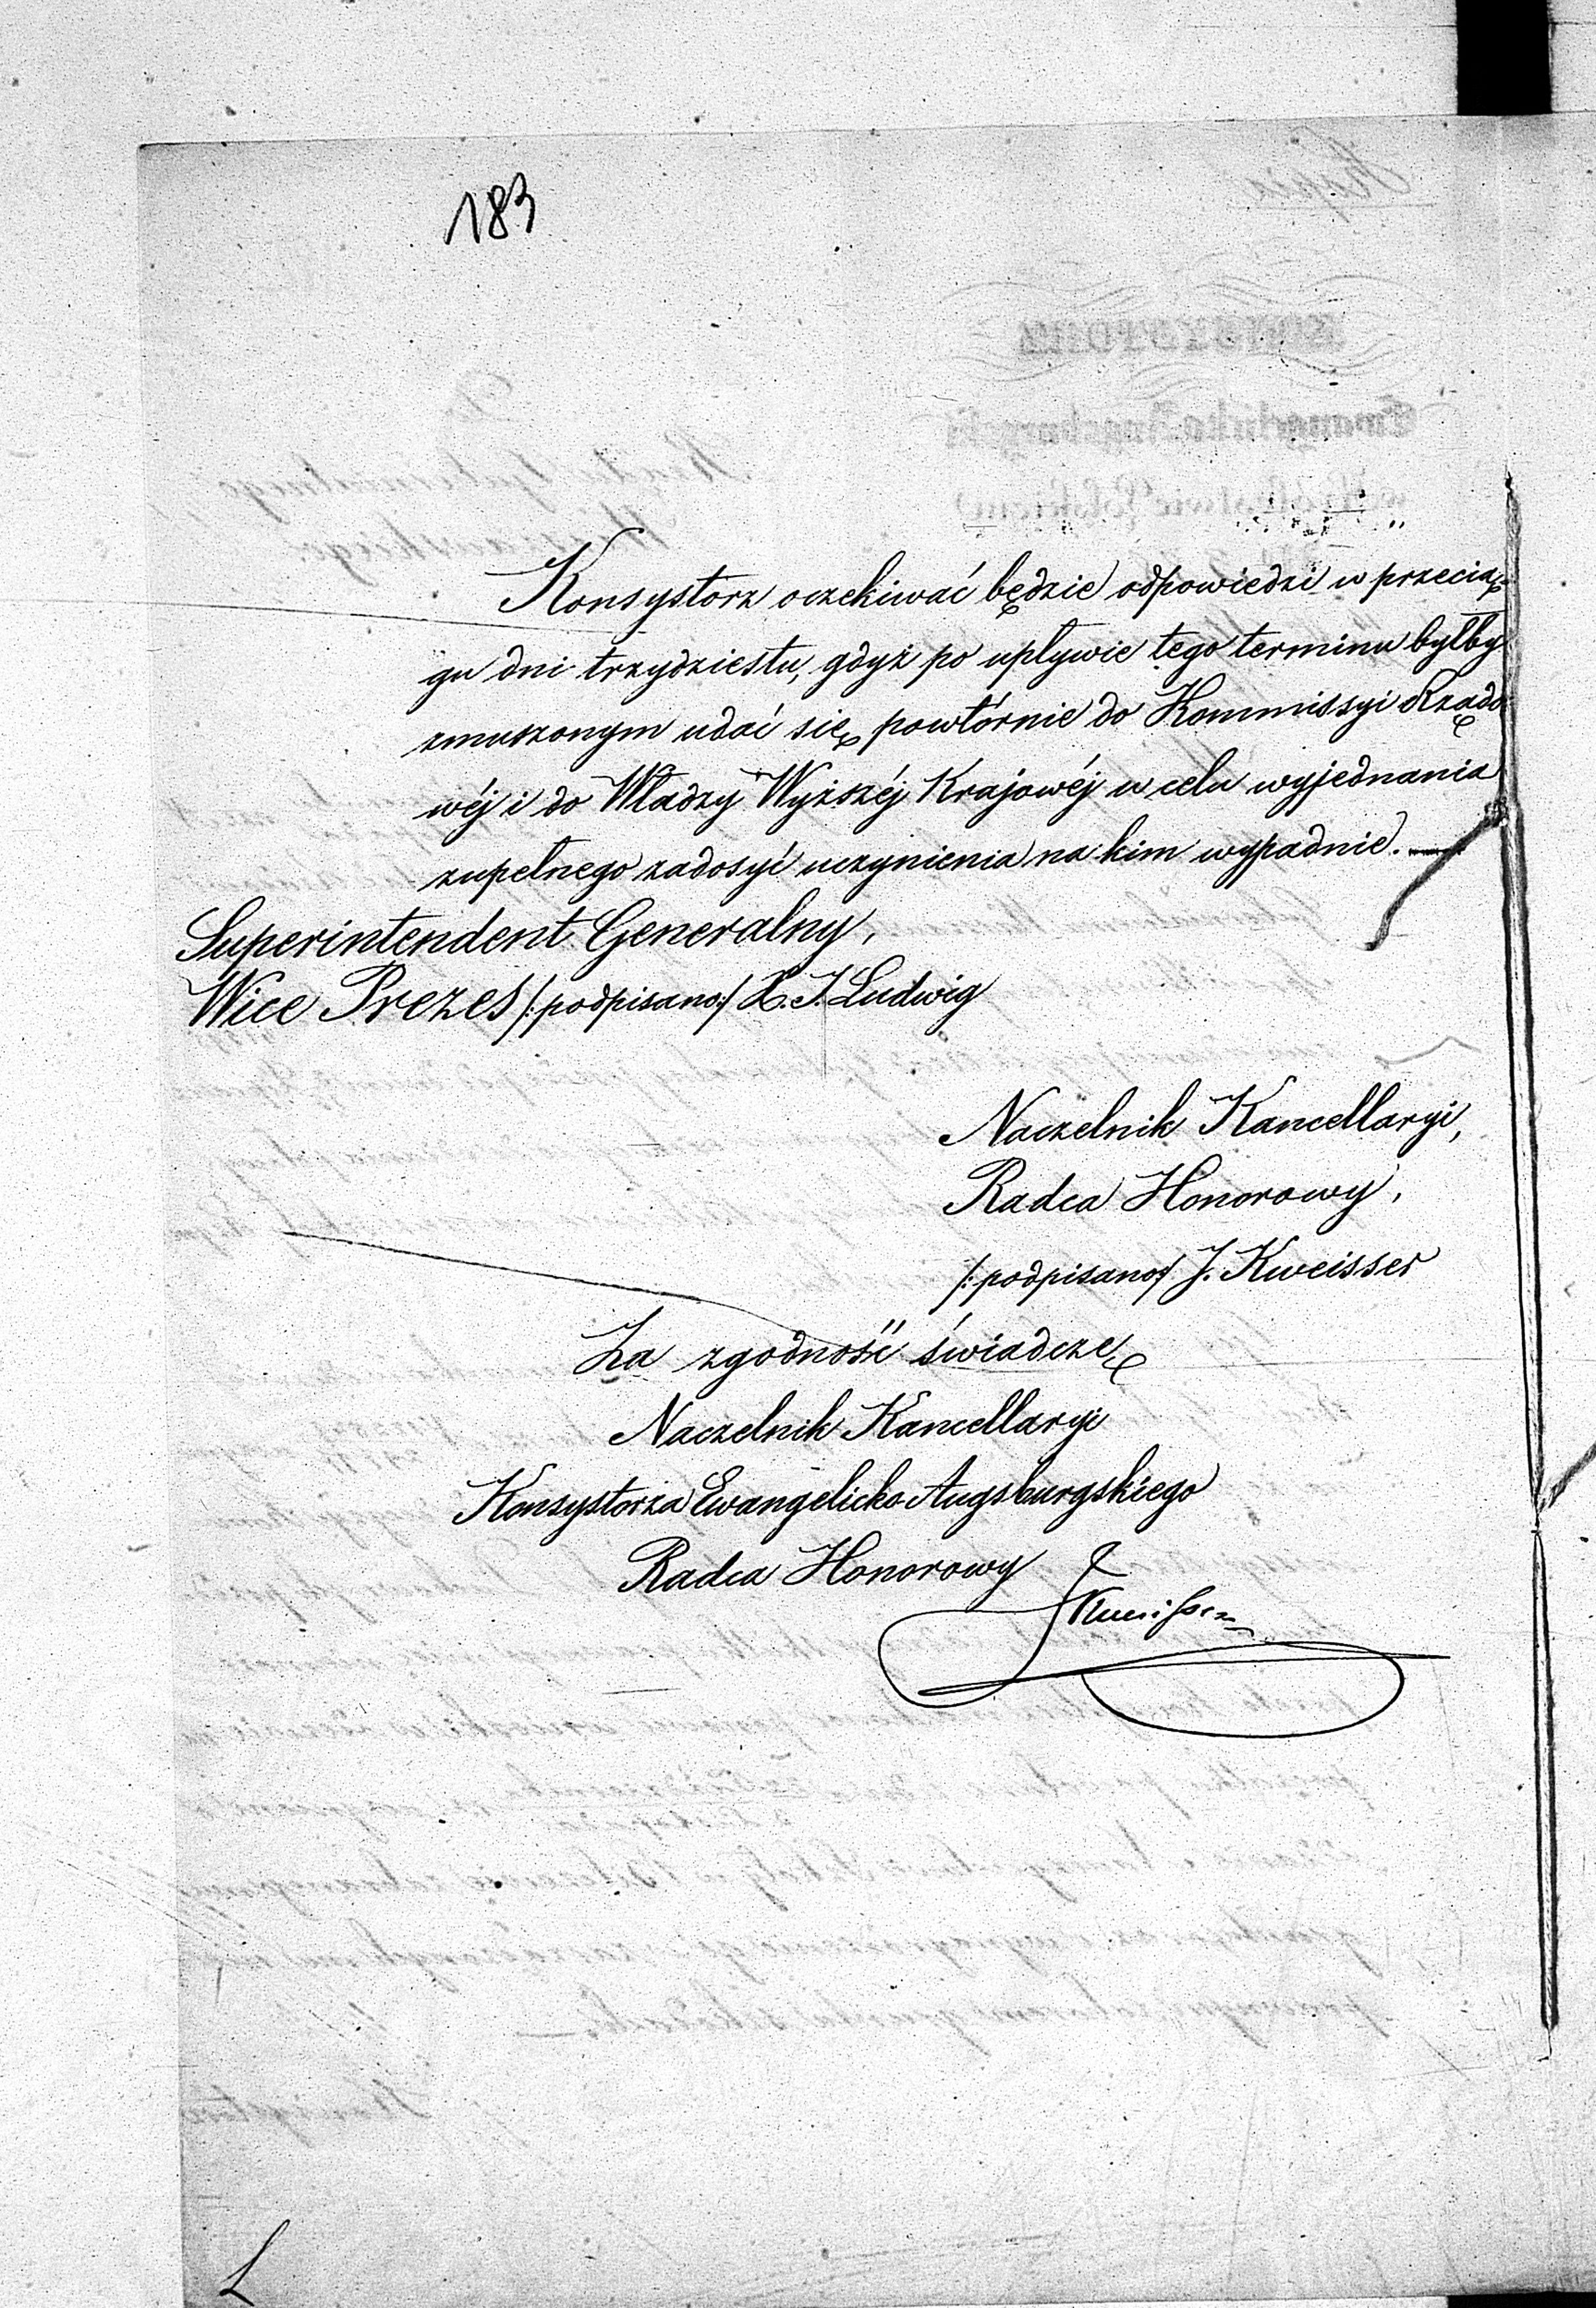 183
Konsystorz oczekiwać będzie odpowiedzi w przecią-
gu dni trzydziestu, gdyż po upływie tego terminu byłby
zmuszonym udać się powtórnie do Kommissyi Rządo
wéj i do Władzy Wyższéj Krajowéj w celu wyjednania
zupełnego zadosyć uczynienia na kim wypadnie.
Superintendent Generalny,
Wice Prezes /:podpisano:/ X. J. Ludwig
Naczelnik Kancellaryi,
Radca Honorowy,
/:podpisano:/ J. Kweisser
Za zgodność świadczę
Naczelnik Kancellaryi
Konsystorza Ewangelicko Augsburgskiego
Radca Honorowy
JKweisser
L